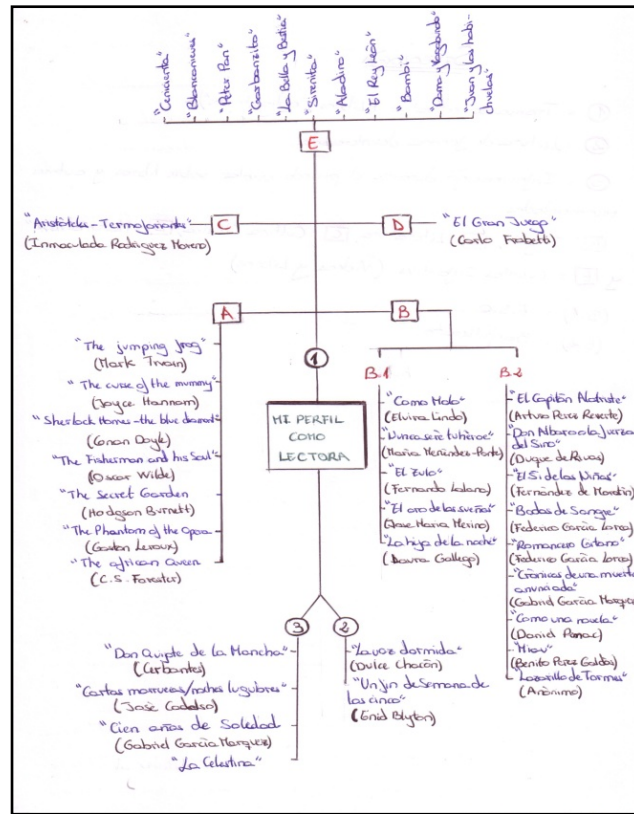 "Cenicienta"
"Blancanieves"
"Peter Pan"
"Garbanzito"
"La Bella y Bestia"
"Sirenita"
"Aladino"
"El Rey León"
"Bambi"
"Dama y Vagabundo"
"Juan y las habi-
chuelas"
E
"Aristóteles-
(Inmaculada Rodriguez Moreno)
C
D
"El Gran Juego"
(Carlo Frabetti)
A
B
1
MI PERFIL
COMO
LECTORA
"The jumping frog"
(Mark Twain)
"The curse of the mummy"
(Joyce Hannam)
"Sherlock Homes-the blue
(Conan Doyle)
"The Fisherman and his Soul"
(Oscar Wilde)
"The Secret Garden
(Hodgson Burnett)
"The Phantom of the Opera
(Gaston Leroux)
"The african Queen
(C.S. Forester)
B.1
"Como Molo"
(Elvira Lindo)
"Nunca seré tu héroe"
(María Menéndez-Ponte)
"El Zulo"
(Fernando Lalana)
"El oro de los sueños"
(Jose Maria Merino)
"La hija de la noche"
(Laura Gallego)
B.2
"El Capitán Alatriste"
(Arturo Perez Reverte)
"Don Albaro o la fuerza
del Sino"
(Duque de Rivas)
"El Si de las Niñas"
(Fernández de Moratín)
"Bodas de Sangre"
(Federico García Lorca)
"Romancero Gitano"
(Federico García Lorca)
"Crónicas de una muerte
anunciada"
(Gabriel García Marquez)
"Como una novela"
(Daniel Penac)
"Miau"
(Benito Perez Galdós)
"Lazarillo de Tormes"
(Anónimo)
3
2
"Don Quijote de La Mancha"
(Cerbantes)
"Cartas marruecas/noches lugubres"
(José Cadalso)
"Cien años de Soledad
(Gabriel García Marquez)
"La Celestina"
"La voz dormida"
(Dulce Chacón)
"Un fin de semana de
los cinco"
(Enid Blyton)